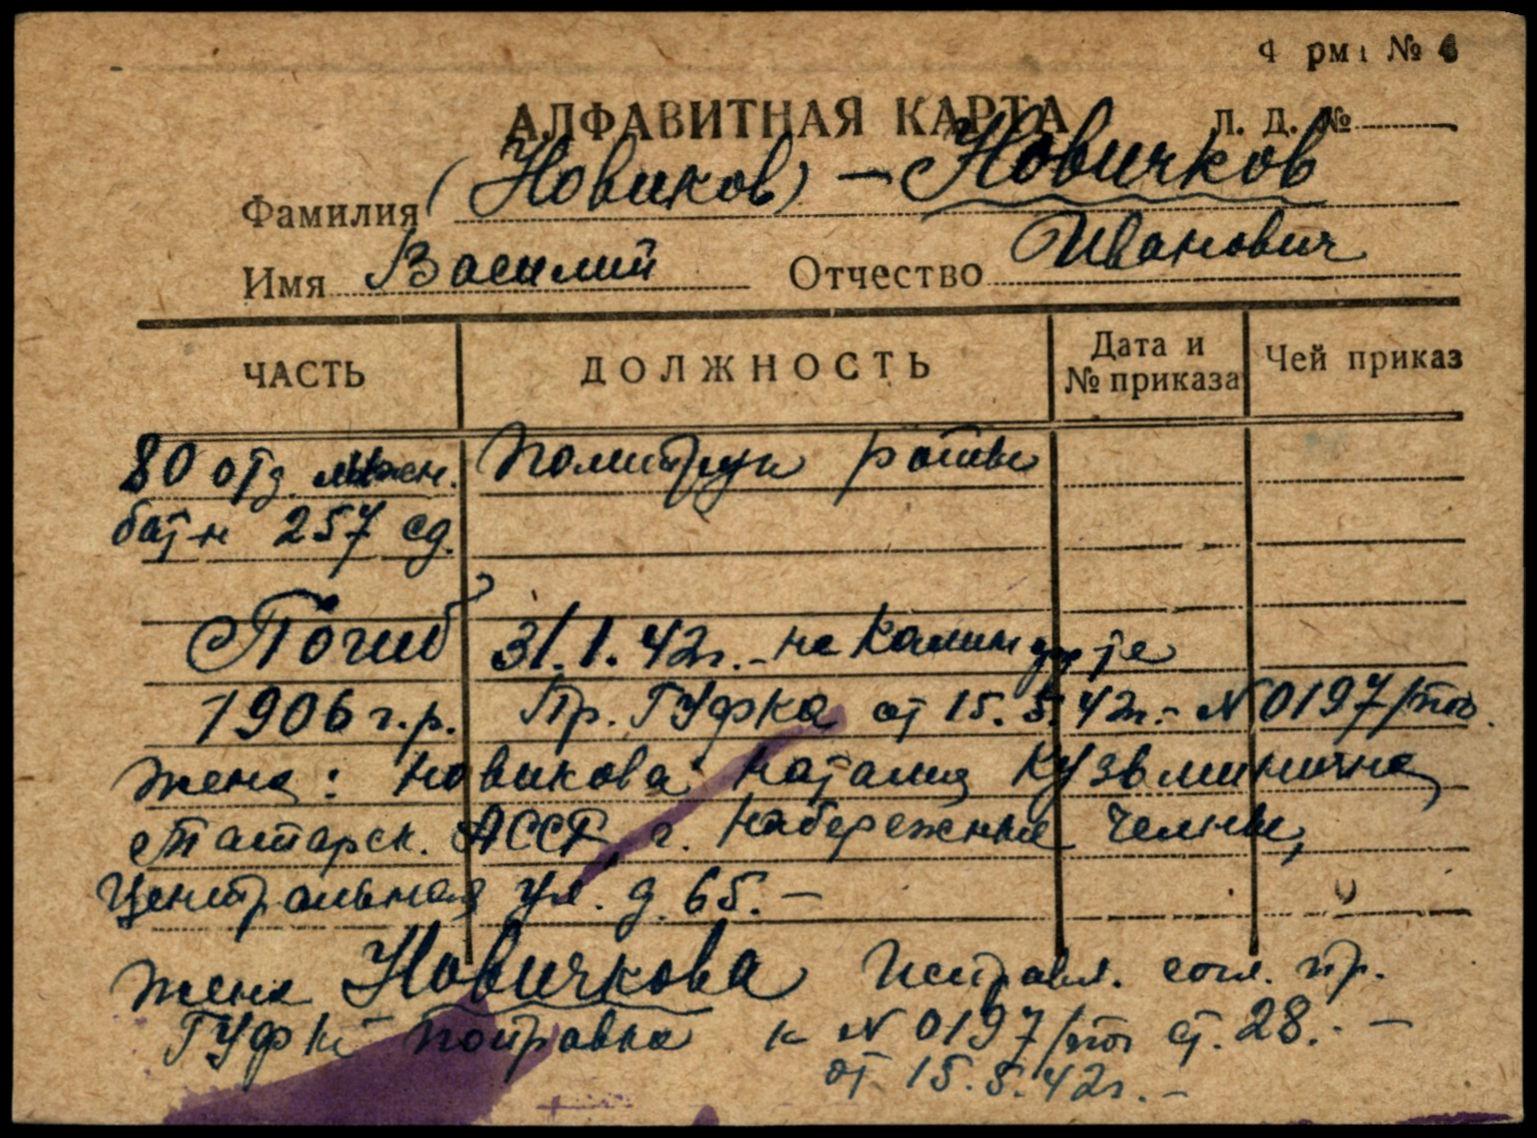 Форма № 6
АЛФАВИТНАЯ КАРТА Л. Д. №
Фамилия (Новиков) – Новичков
Имя Василий Отчество Иванович
ЧАСТЬ ДОЛЖНОСТЬ Дата и № приказа Чей приказ
80 отд. инжен. Политрук роты
бат-н 257 сд.
Погиб 31.1.42г. – на Калин фр-те
1906 г.р. Пр. ГУФКа от 15.5.42г. – N 0197/пог.
Жена: Новикова Наталия Кузьминична
Татарск. АССР, г. Набережные Челны,
Центральная ул. д. 65. –
Жена Новичкова Исправл. согл. пр.
ГУФК поправка к N 0197/пог ст. 28. –
от 15.5.42г. –